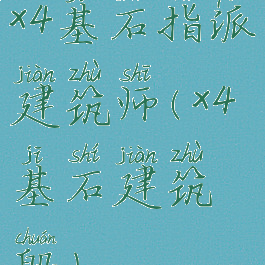 ×4基石指派
jiàn zhù shī
建筑师(×4
jī shí jiàn zhù
基石建筑
chuán